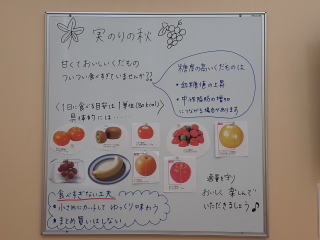 実のりの秋
甘くておいしいくだもの
ついつい食べすぎていませんか??
糖度の高いくだものは
・血糖値の上昇
・中性脂肪の増加
につながる場合があります
〈1日に食べる目安は1単位(80kcal)〉
具体的には……
食べすぎない工夫
・小さめにカットして ゆっくり味わう
・まとめ買いはしない
適量を守り
おいしく 楽しんで
いただきましょう♪